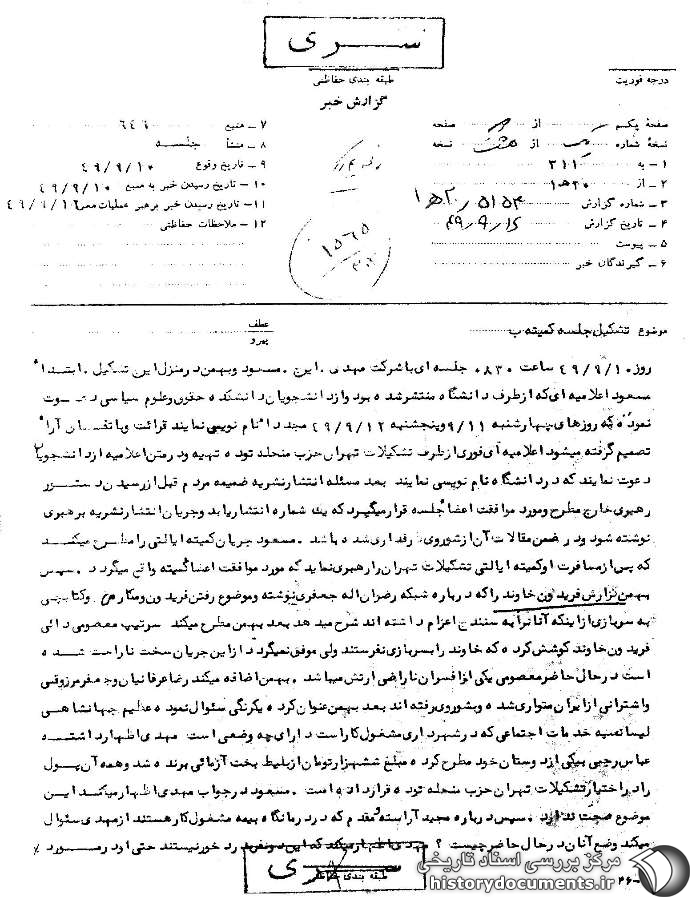 سری
طبقه بندی حفاظتی
درجه فوریت
گزارش خبر
صفحهٔ یکم از صفحه
نسخهٔ شماره از نسخه
۱ - به ۳۱۱
۲ - از ۱۵۲۰
۳ - شماره گزارش
۴ - تاریخ گزارش
۵ - پیوست
۶ - گیرندگان خبر
۷ - منبع ۶۴۶
۸ - منشأ جلسه
۹ - تاریخ وقوع ۴۹/۹/۱۰
۱۰ - تاریخ رسیدن خبر به منبع ۴۹/۹/۱۰
۱۱ - تاریخ رسیدن خبر برهبر عملیات
۱۲ - ملاحظات حفاظتی
موضوع تشکیل جلسه کمیته ب
عطف
پیرو
روز ۴۹/۹/۱۰ ساعت ۰۸۳۰ جلسه ای با شرکت مهدی . ایرج . مسعود و بهمن در منزل این تشکیل . ابتدا
مسعود اعلامیه ای که از طرف دانشگاه منتشر شده بود و از دانشجویان دانشکده حقوق و علوم سیاسی دعوت
نموده که روزهای چهارشنبه ۹/۱۱ و پنجشنبه ۴۹/۹/۱۲ مجددا نام نویسی نمایند قرائت و با آرا
تصمیم گرفته میشود اعلامیه ای فوری از طرف تشکیلات تهران حزب منحله توده تهیه و در متن اعلامیه از دانشجویان
دعوت نمایند که در دانشگاه نام نویسی نمایند بعد مسئله انتشار نشریه ضمیمه مردم قبل از رسیدن دستور
رهبری خارج مطرح و مورد موافقت اعضا جلسه قرار میگیرد که یک شماره انتشار یابد و جریان انتشار نشریه برهبری
نوشته شود و در ضمن مقالات آن از شوروی طرفداری شده باشد . مسعود جریان کمیته ایالتی را مطرح میکند
که پس از مسافرت او کمیته ایالتی تشکیلات تهران را رهبری نماید که مورد موافقت اعضا کمیته واقع میگردد . سپس
بهمن گزارش فریدون خاوند را که درباره شبکه رضوان اله جعفری نوشته و موضوع رفتن فریدون و
به سربازی از اینکه آنانرا به سنندج اعزام داشته اند شرح میدهد بعد بهمن مطرح میکند سرتیپ معصومی دائی
فریدون خاوند کوشش کرده که خاوند را بسربازی نفرستند ولی موفق نمیگردد از این جریان سخت ناراحت شده
است در حال حاضر معصومی یکی از افسران ناراضی ارتش میباشد . بهمن اضافه میکند رضا عرفانیان و جعفر مرزوقی
و اشترانی از ایران متواری شده و بشوروی رفته اند بعد بهمن عنوان کرده یکرنگی سئوال نموده عظیم جهانشاهی
لیسانسیه خدمات اجتماعی که در شهرداری مشغول کار است دارای چه وضعی است مهدی اظهار داشته
عباس رجبی بیکی از دوستان خود مطرح کرده مبلغ ششهزار تومان از بلیط بخت آزمائی برنده شد و همه آن پول
را در اختیار تشکیلات تهران حزب منحله توده قرار داده است . مسعود در جواب مهدی اظهار میکند این
موضوع صحت ندارد . سپس درباره مجید آراسته و مقدم که در درمانگاه بیمه مشغول کار هستند از مهدی سئوال
میکند وضع آنان در حال حاضر چیست ؟ مهدی اظهار میکند که این دو نفر بدرد خور نیستند حتی او در مورد
سری
طبقه بندی حفاظتی
مرکز بررسی اسناد تاریخی
historydocuments.ir